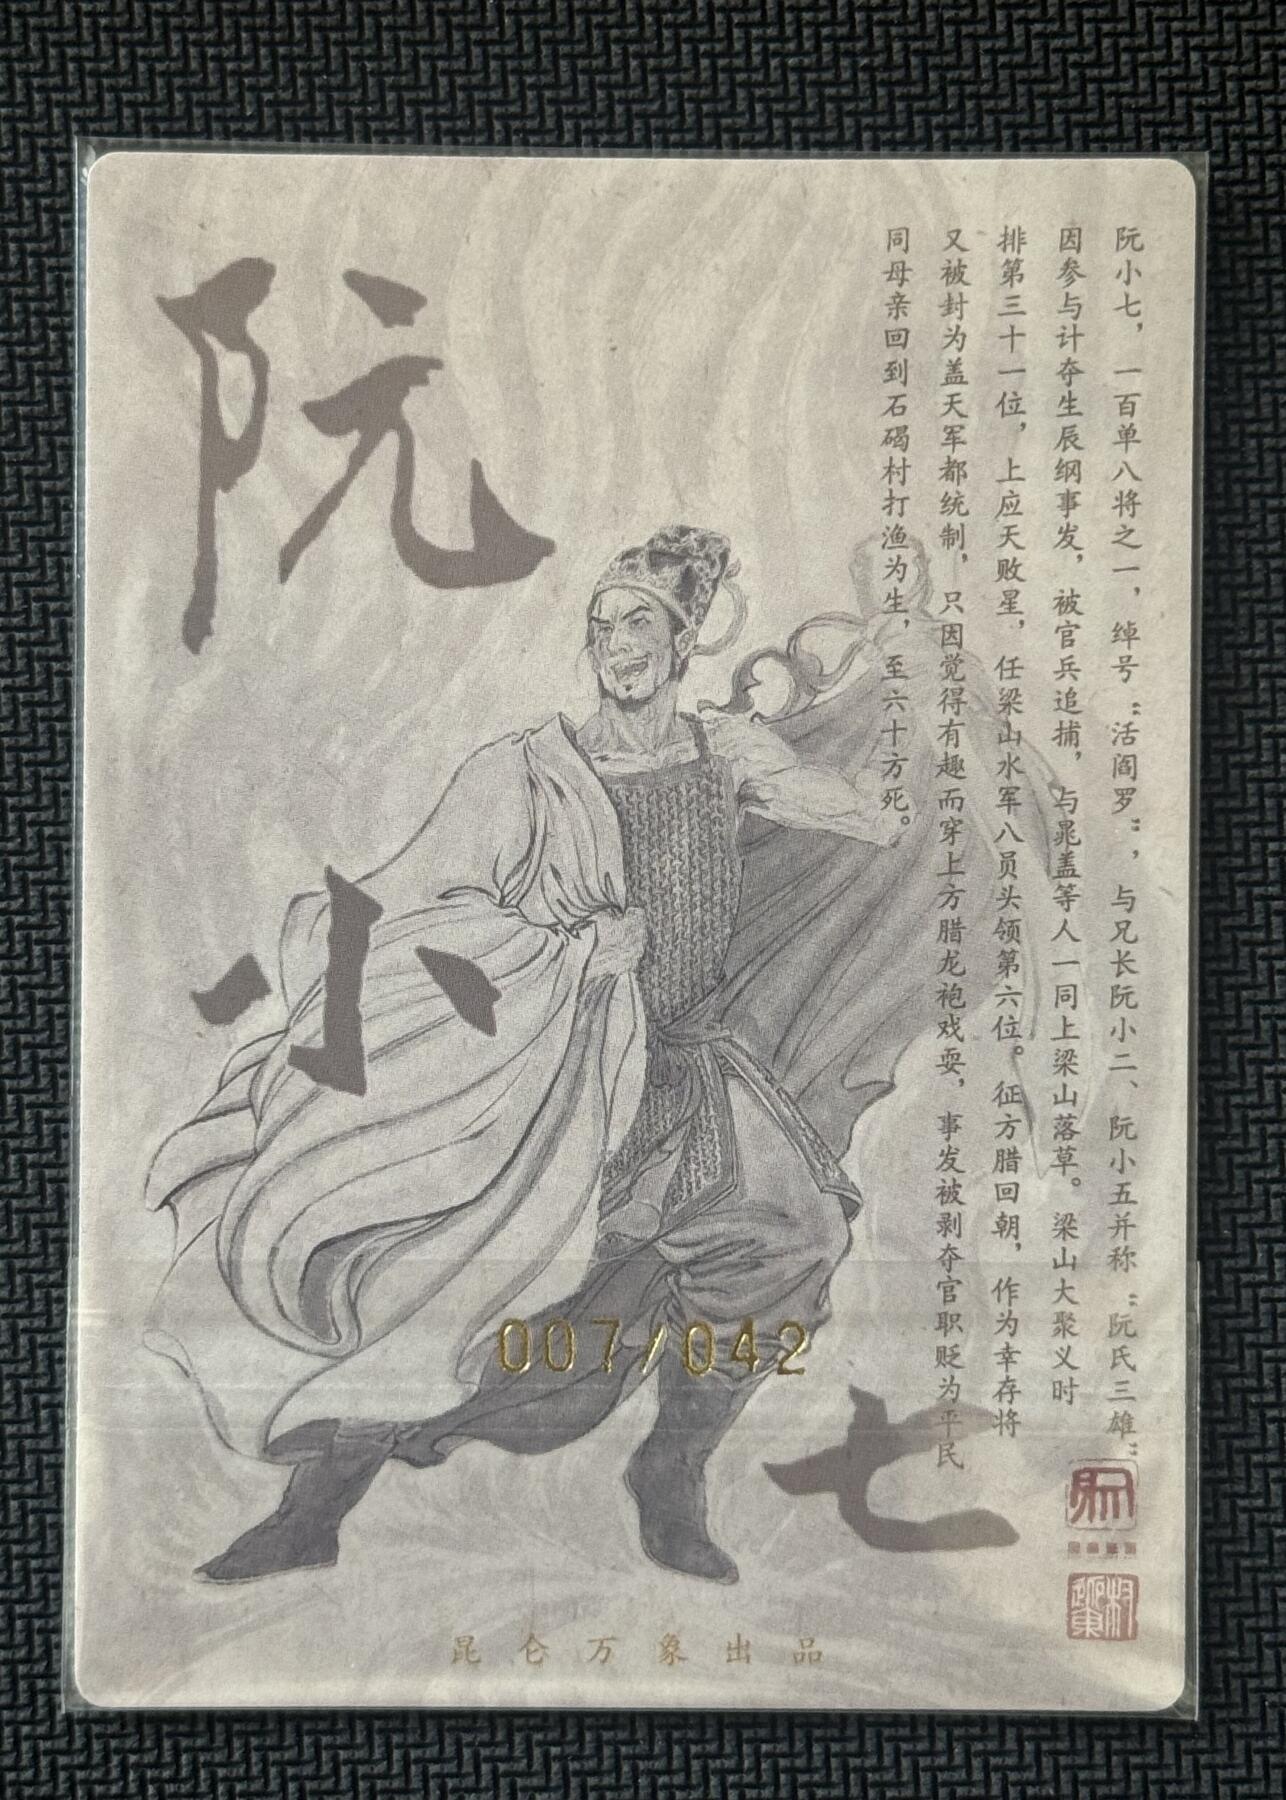 阮小七
阮小七，一百单八将之一，绰号“活阎罗”，与兄长阮小二、阮小五并称“阮氏三雄”
因参与计夺生辰纲事发，被官兵追捕，与晁盖等人一同上梁山落草。梁山大聚义时
排第三十一位，上应天败星，任梁山水军八员头领第六位。征方腊回朝，作为幸存将
又被封为盖天军都统制，只因觉得有趣而穿上方腊龙袍戏耍，事发被剥夺官职贬为平民
同母亲回到石碣村打渔为生，至六十方死。
007/042
昆仑万象出品